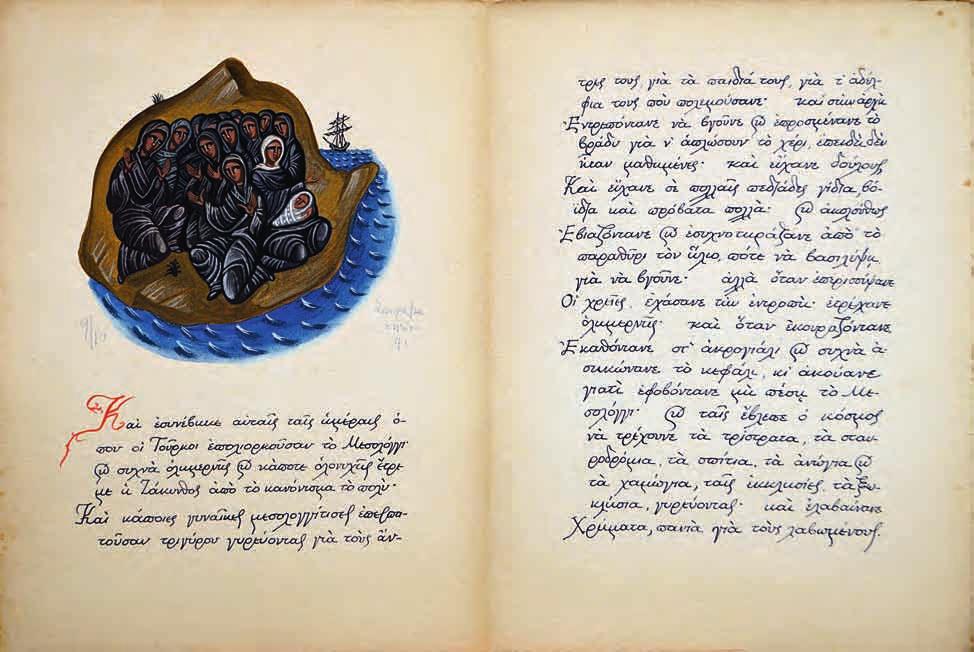 9/80
91
Καὶ ἐσυνέβηκε αὐταῖς ταῖς ἡμέραις ὅ-
που οἱ Τοῦρκοι ἐπολιορκοῦσαν τὸ Μεσολόγγι
ϗ συχνὰ ὁλημερνῆς ϗ κάποτε ὁλονυχτῆς ἔτρε-
με ἡ Ζάκυνθος ἀπὸ τὸ κανόνισμα τὸ πολύ·
Καὶ κάποιες γυναῖκες μεσολογγίτισσες ἐπερπα-
τοῦσαν τριγύρου γυρεύοντας γιὰ τοὺς ἄν-
τρες τους, γιὰ τὰ παιδιά τους, γιὰ τ' ἀδέλ-
φια τους ποὺ πολεμούσανε· καὶ στὴν ἀρχὴ
Ἐντρεπόντανε νὰ βγοῦνε ϗ ἐπροσμένανε τὸ
βράδυ γιὰ ν' ἁπλώσουν τὸ χέρι, ἐπειδὴ δὲν
ἦταν μαθημένες· καὶ εἴχανε δούλους
Καὶ εἴχανε σὲ πολλαῖς πεδιάδες γίδια, βό-
ϊδια καὶ πρόβατα πολλά· ϗ ἀκολούθως
Ἐβιαζόντανε ϗ ἐσυχνοτηράζανε ἀπὸ τὸ
παραθύρι τὸν ἥλιο, πότε νὰ βασιλέψη,
γιὰ νὰ βγοῦνε· ἀλλὰ ὅταν ἐπερισσέψανε
Οἱ χρεῖες, ἐχάσανε τὴν ἐντροπὴ· ἐτρέχανε
ὁλημερνῆς· καὶ ὅταν ἐκουραζόντανε
Ἐκαθόντανε στ' ἀκρογιάλι ϗ συχνὰ ἀ-
σηκώνανε τὸ κεφάλι, κι' ἀκούανε
γιατὶ ἐφοβόντανε μὴ πέση τὸ Με-
σολόγγι· ϗ ταῖς ἔβλεπε ὁ κόσμος
νὰ τρέχουνε τὰ τρίστρατα, τὰ σταυ-
ροδρόμια, τὰ σπίτια, τὰ ἀνώγια ϗ
τὰ χαμώγια, ταῖς ἐκκλησίες, τὰ ξω-
κλήσια, γυρεύοντας· καὶ ἐλαβαίνανε
Χρήματα, πανιὰ γιὰ τοὺς λαβωμένους.